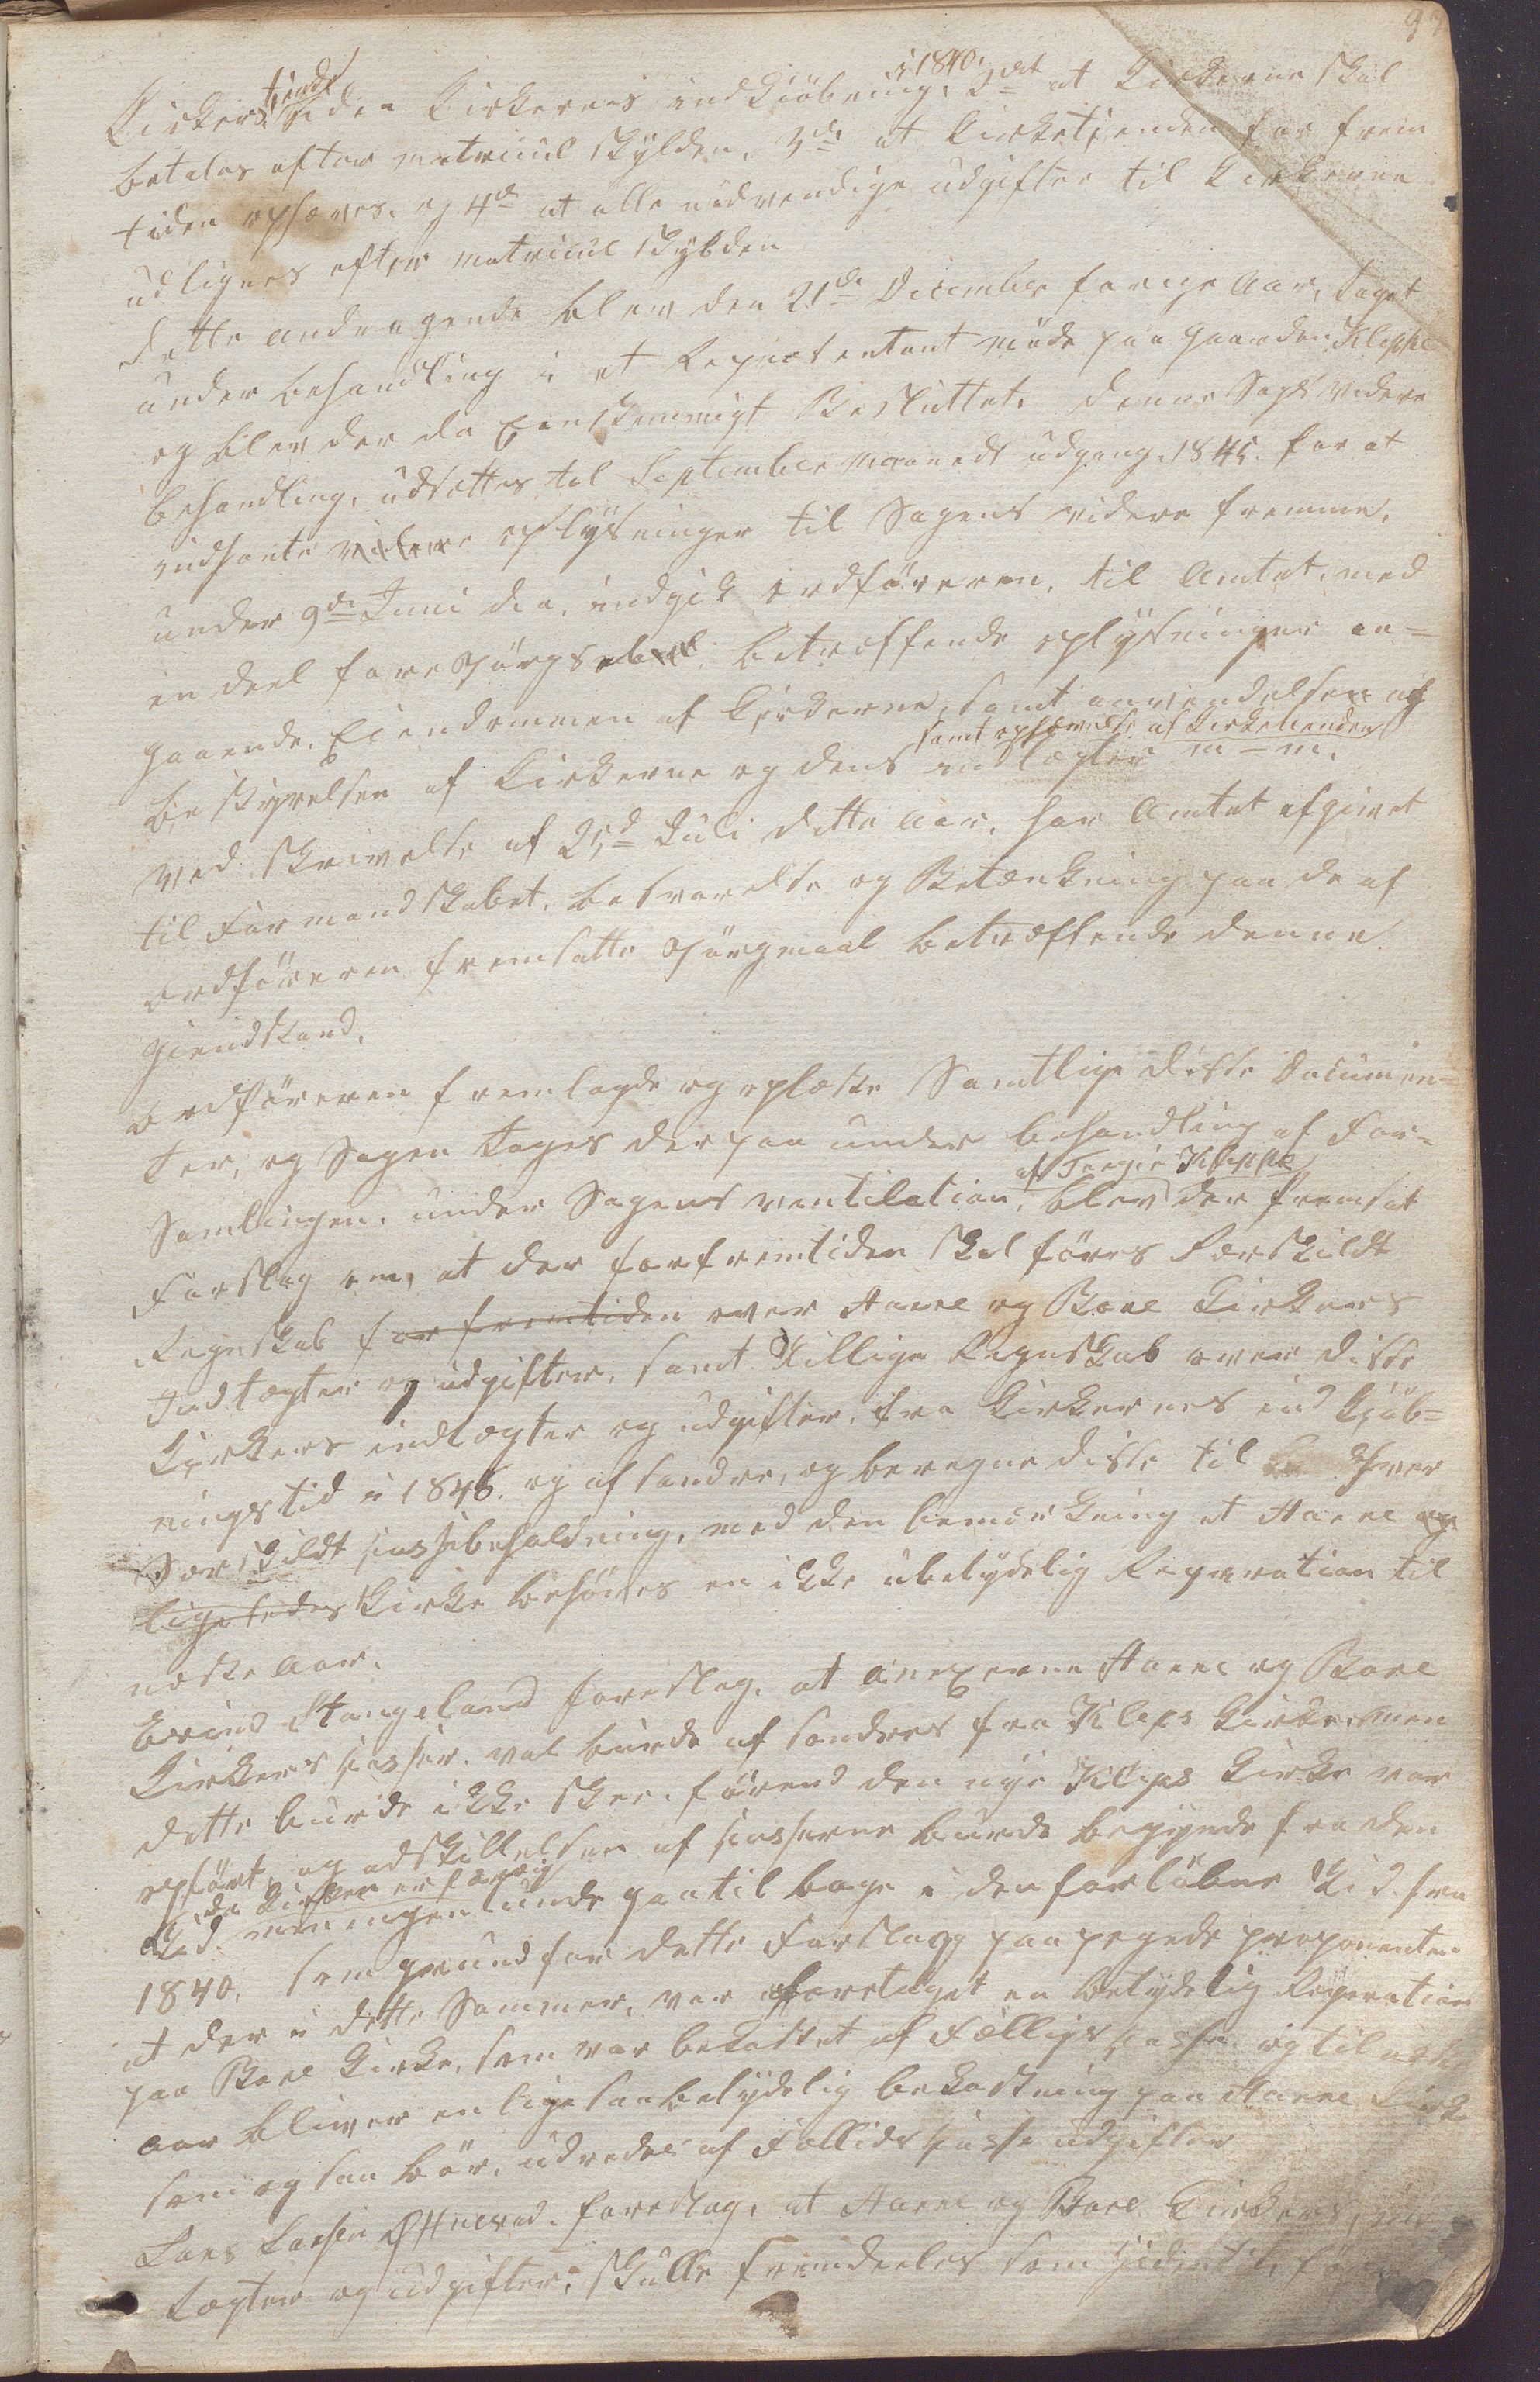 97
Kirkers tiende siden Kirkernes indkiöbning i 1840. 2det at Kirkerne skal
betales efter matricul skylden. 3de at Kirketienden for frem
tiden ophæves. og 4de at alle nödvendige udgifter til Kirkerne
udlignes efter matricul skylden
Dette andragende blev den 21de December forige Aar, taget
under behandling i et Repræsentant möde paa gaarden Kleppe
og blev der da Eenstemmigt Besluttet. denne Sags videre
behandling, udsættes til September maaneds udgang 1845. for at
indhente videre oplysninger til Sagens videre fremme.
under 9de Juni d. a. indgik ordföreren, til Amtet, med
en deel forespörgsel betræffende oplysninger an-
gaaende Eiendommen af Kirkerne, samt anvendelsen af
samt ophævelse af Kirketienden
bestyrelsen af Kirkerne og dens indtægter m-m.
ved skrivelse af 25de Juli dette Aar, har Amtet afgivet
til Formandskabet, besvarelse og Betænkning paa de af
Ordföreren fremsatte spörgmaal betræffende denne
Gienstand.
Ordföreren fremlagde og oplæste Samtlige disse Documen-
ter, og Sagen toges derpaa under behandling af For-
samlingen. under Sagens ventilation, af Torgie Kleppe blev der fremsat
Forslag om, at der forfremtiden skal föres særskildt
Regnskab for fremtiden over Haaee og Bore Kirkers
Indtægter og udgifter, samt tillige Regnskab over disse
Kirkers indtægter og udgifter, fra Kirkernes ind kjöb-
nings tid i 1840. og afsondre, og beregne disse til hver
Særskildt Cassebeholdning, med den bemærkning at Haaee og
ligeledes Kirke behöves en ikke ubetydelig Reparation til
næste Aar.
Eivind Stangeland foreslog, at annexerne Haaee og Bore
Kirkers Casser. vel burde afsondres fra Kleps Kirke, men
dette burde ikke skee. förend den nye Kleps Kirke var
opfört, og adskillelsen af Casserne burde begynde fra den
da Kirken er færdig
Tid. men ingenlunde gaa tilbage i den forlöbne Tid. fra
1840. som grund for dette Forslag paapegede proponenten
at der i dette Sommer, var foretaget en betydelig Reparation
paa Bore Kirke, som var bekostet af Fælligs Casse. og til næste
Aar bliver en ligesaa betydelig bekostning paa Haaee Kirke
som ogsaa bör, udredes af Fællids Casse udgifter
Lars Larsen foreslog, at Haaee og Bore Kirkers, ind
tægter og udgifter, skulle fremdeles som hidentil,